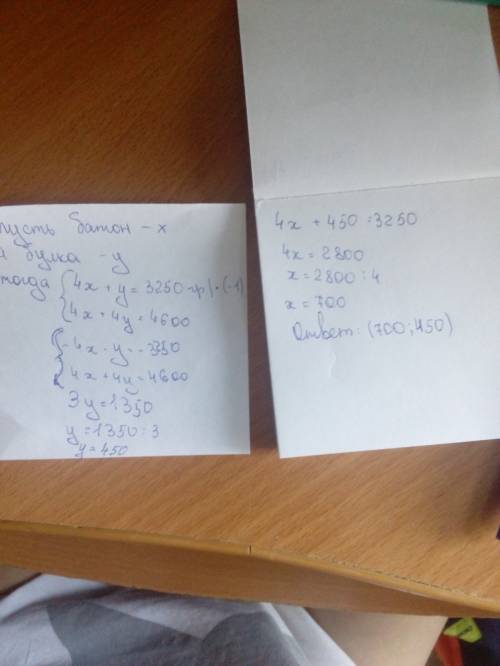 пусть батон - x
а булка - y
тогда { 4x + y = 3250 гр | • (-1)
4x + 4y = 4600
{ -4x - y = -3250
4x + 4y = 4600
3y = 1350
y = 1350 : 3
y = 450
4x + 450 = 3250
4x = 2800
x = 2800 : 4
x = 700
Ответ: (700; 450)